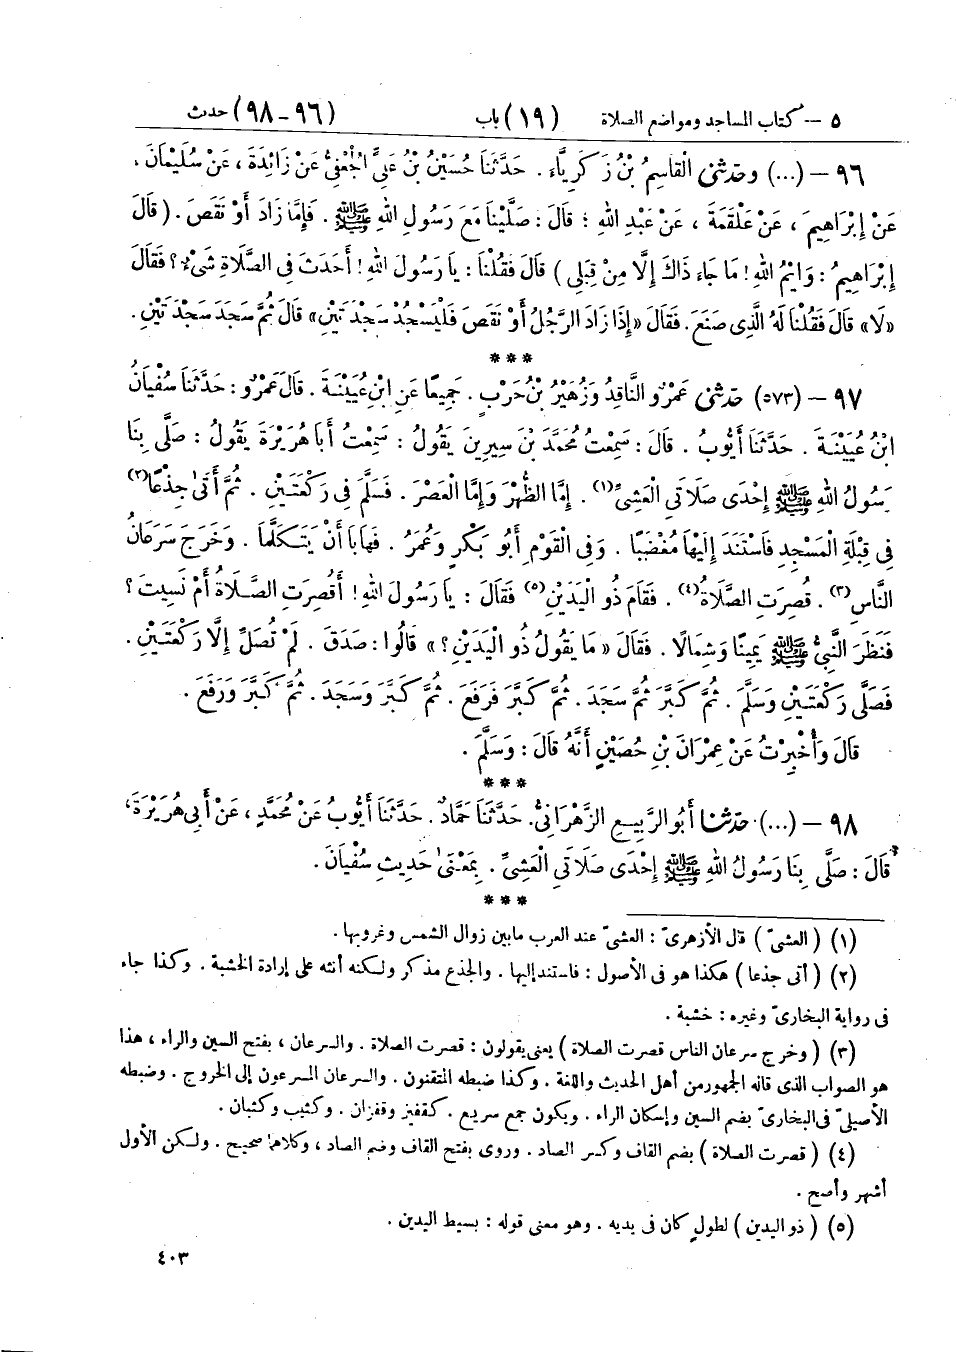 ٥ – كتاب المساجد ومواضع الصلاة (١٩) باب (٩٦-٩٨) حدث
٩٦ – (...) وَحَدَّثَنِي الْقَاسِمُ بْنُ زَكَرِيَّاءَ . حَدَّثَنَا حُسَيْنُ بْنُ عَلِيٍّ الْجُعْفِيُّ عَنْ زَائِدَةَ ، عَنْ سُلَيْمَانَ ،
عَنْ إِبْرَاهِيمَ ، عَنْ عَلْقَمَةَ ، عَنْ عَبْدِ اللهِ ؛ قَالَ : صَلَّيْنَا مَعَ رَسُولِ اللهِ ﷺ . فَإِمَّا زَادَ أَوْ نَقَصَ . ( قَالَ
إِبْرَاهِيمُ : وَايْمُ اللهِ ! مَا جَاءَ ذَاكَ إِلَّا مِنْ قِبَلِي ) قَالَ فَقُلْنَا : يَا رَسُولَ اللهِ ! أَحَدَثَ فِي الصَّلَاةِ شَيْءٌ ؟ فَقَالَ
« لَا » قَالَ فَقُلْنَا لَهُ الَّذِي صَنَعَ . فَقَالَ « إِذَا زَادَ الرَّجُلُ أَوْ نَقَصَ فَلْيَسْجُدْ سَجْدَتَيْنِ » قَالَ ثُمَّ سَجَدَ سَجْدَتَيْنِ .
***
٩٧ – (٥٧٣) حَدَّثَنِي عَمْرٌو النَّاقِدُ وَزُهَيْرُ بْنُ حَرْبٍ . جَمِيعًا عَنِ ابْنِ عُيَيْنَةَ . قَالَ عَمْرٌو : حَدَّثَنَا سُفْيَانُ
ابْنُ عُيَيْنَةَ . حَدَّثَنَا أَيُّوبُ . قَالَ : سَمِعْتُ مُحَمَّدَ بْنَ سِيرِينَ يَقُولُ : سَمِعْتُ أَبَا هُرَيْرَةَ يَقُولُ : صَلَّى بِنَا
رَسُولُ اللهِ ﷺ إِحْدَى صَلَاتَيِ الْعَشِيِّ (١) . إِمَّا الظُّهْرَ وَإِمَّا الْعَصْرَ . فَسَلَّمَ فِي رَكْعَتَيْنِ . ثُمَّ أَتَى جِذْعًا (٢)
فِي قِبْلَةِ الْمَسْجِدِ فَاسْتَنَدَ إِلَيْهَا مُغْضَبًا . وَفِي الْقَوْمِ أَبُو بَكْرٍ وَعُمَرُ . فَهَابَا أَنْ يَتَكَلَّمَا . وَخَرَجَ سَرَعَانُ
النَّاسِ (٣) . قُصِرَتِ الصَّلَاةُ (٤) . فَقَامَ ذُو الْيَدَيْنِ (٥) فَقَالَ : يَا رَسُولَ اللهِ ! أَقُصِرَتِ الصَّلَاةُ أَمْ نَسِيتَ ؟
فَنَظَرَ النَّبِيُّ ﷺ يَمِينًا وَشِمَالًا . فَقَالَ « مَا يَقُولُ ذُو الْيَدَيْنِ ؟ » قَالُوا : صَدَقَ . لَمْ تُصَلِّ إِلَّا رَكْعَتَيْنِ .
فَصَلَّى رَكْعَتَيْنِ وَسَلَّمَ . ثُمَّ كَبَّرَ ثُمَّ سَجَدَ . ثُمَّ كَبَّرَ فَرَفَعَ . ثُمَّ كَبَّرَ وَسَجَدَ . ثُمَّ كَبَّرَ وَرَفَعَ .
قَالَ وَأُخْبِرْتُ عَنْ عِمْرَانَ بْنِ حُصَيْنٍ أَنَّهُ قَالَ : وَسَلَّمَ .
***
٩٨ – (...) حَدَّثَنَا أَبُو الرَّبِيعِ الزَّهْرَانِيُّ . حَدَّثَنَا حَمَّادٌ . حَدَّثَنَا أَيُّوبُ عَنْ مُحَمَّدٍ ، عَنْ أَبِي هُرَيْرَةَ ،
قَالَ : صَلَّى بِنَا رَسُولُ اللهِ ﷺ إِحْدَى صَلَاتَيِ الْعَشِيِّ . بِمَعْنَى حَدِيثِ سُفْيَانَ .
***
(١) ( العشيّ ) قال الأزهريّ : العشيّ عند العرب مابين زوال الشمس وغروبها .
(٢) ( أتى جذعا ) هكذا هو فى الأصول : فاستند إليها . والجذع مذكر ولكنه أنثه على إرادة الخشبة . وكذا جاء
فى رواية البخاريّ وغيره : خشبة .
(٣) ( وخرج سرعان الناس قصرت الصلاة ) يعنى يقولون : قصرت الصلاة . والسرعان ، بفتح السين والراء ، هذا
هو الصواب الذى قاله الجمهور من أهل الحديث واللغة . وكذا ضبطه المتقنون . والسرعان المسرعون إلى الخروج . وضبطه
الأصيلىّ فى البخارىّ بضم السين وإسكان الراء . ويكون جمع سريع . كقفيز وقفزان . وكثيب وكثبان .
(٤) ( قصرت الصلاة ) بضم القاف وكسر الصاد . وروى بفتح القاف وضم الصاد ، وكلاهما صحيح . ولكن الأول
أشهر وأصح .
(٥) ( ذو اليدين ) لطولٍ كان فى يديه . وهو معنى قوله : بسيط اليدين .
٤٠٣